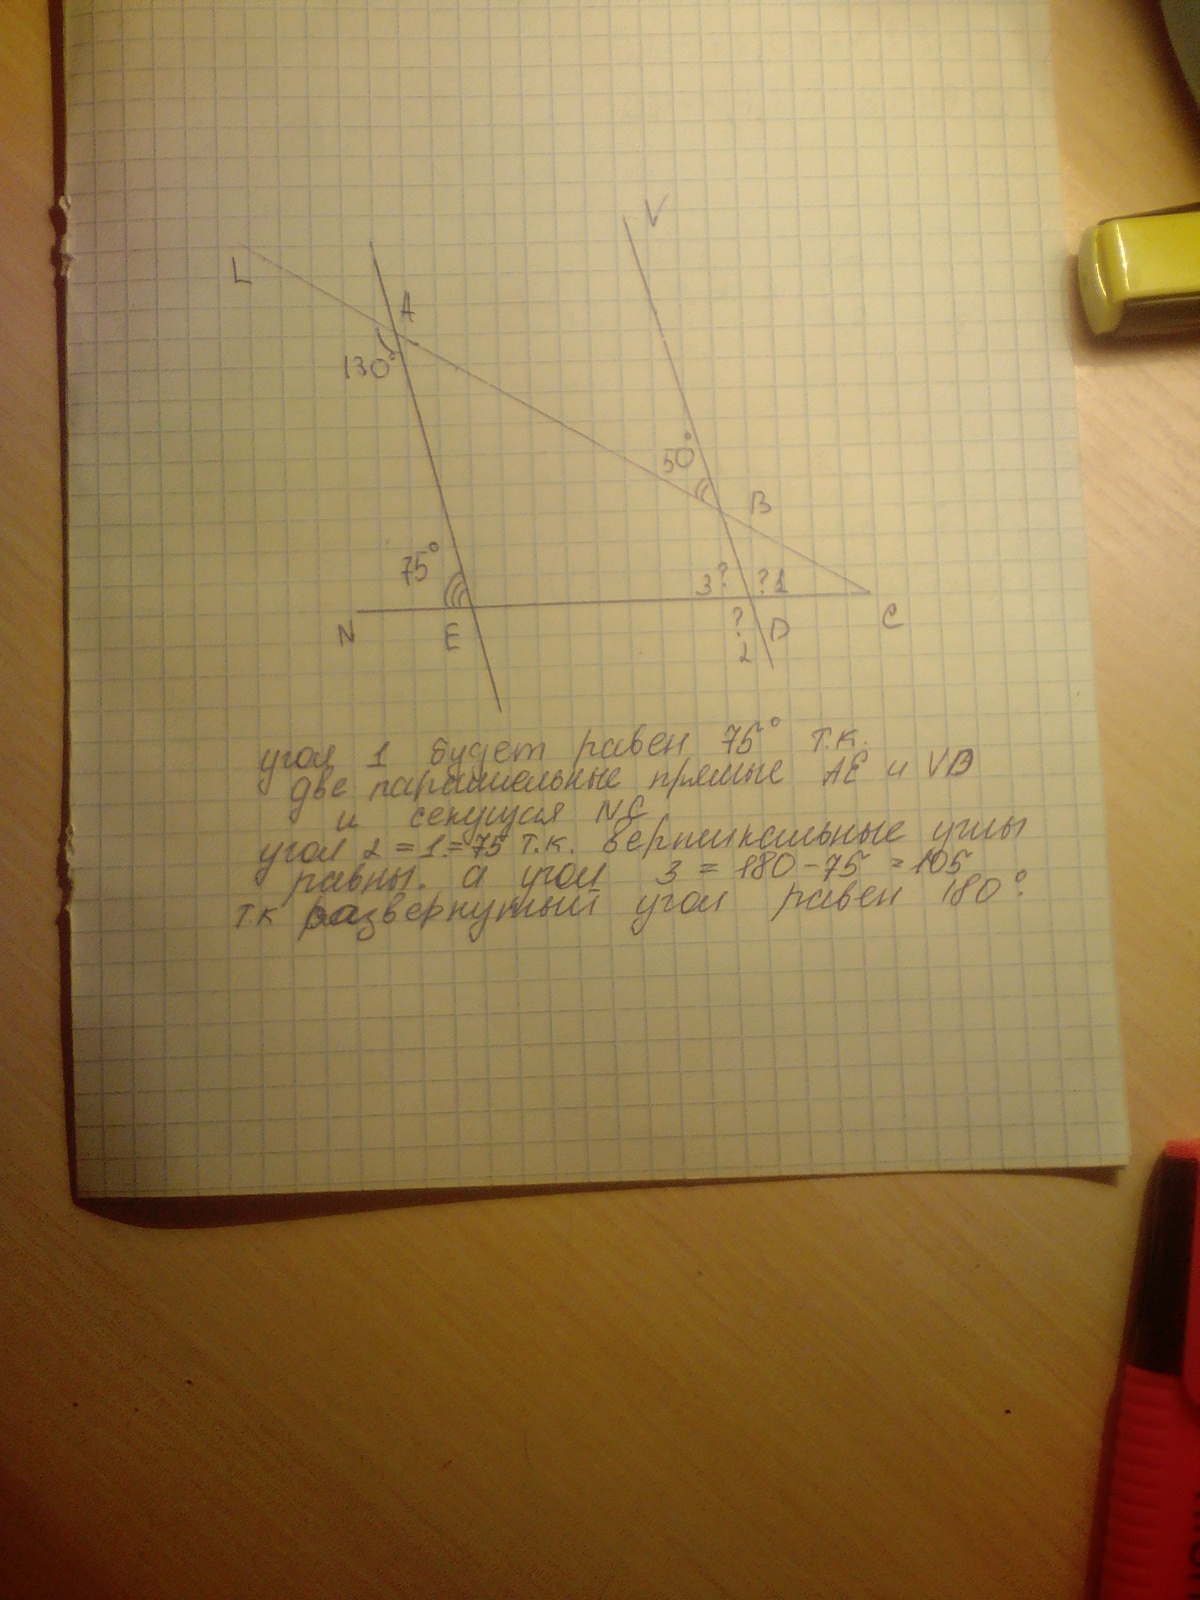 V
L
A
130°
50°
B
75°
3? ?1
N
E
?
2
D
C
угол 1 будет равен 75° т.к.
две параллельные прямые AE и VD
и секущая NC
угол 2 = 1 = 75 т.к. вертикальные углы
равны. а угол 3 = 180 - 75 = 105
тк развернутый угол равен 180°.